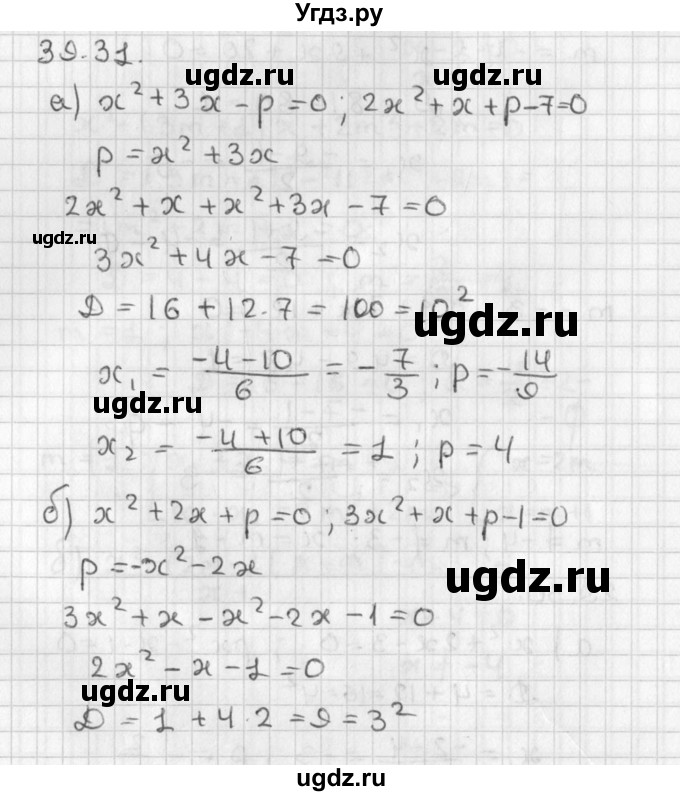 Угдз.ру
39.31.
а) x² + 3x - p = 0; 2x² + x + p - 7 = 0
ugdz.ru
p = x² + 3x
2x² + x + x² + 3x - 7 = 0
ugdz.ru
ugdz.ru
3x² + 4x - 7 = 0
D = 16 + 12·7 = 100 = 10²
ugdz.ru
x₁ = (-4-10)/6 = -7/3; p = -14/9
ugdz.ru
x₂ = (-4+10)/6 = 1; p = 4
б) x² + 2x + p = 0; 3x² + x + p - 1 = 0
p = -x² - 2x
ugdz.ru
3x² + x - x² - 2x - 1 = 0
2x² - x - 1 = 0
ugdz.ru
D = 1 + 4·2 = 9 = 3²
ugdz.ru